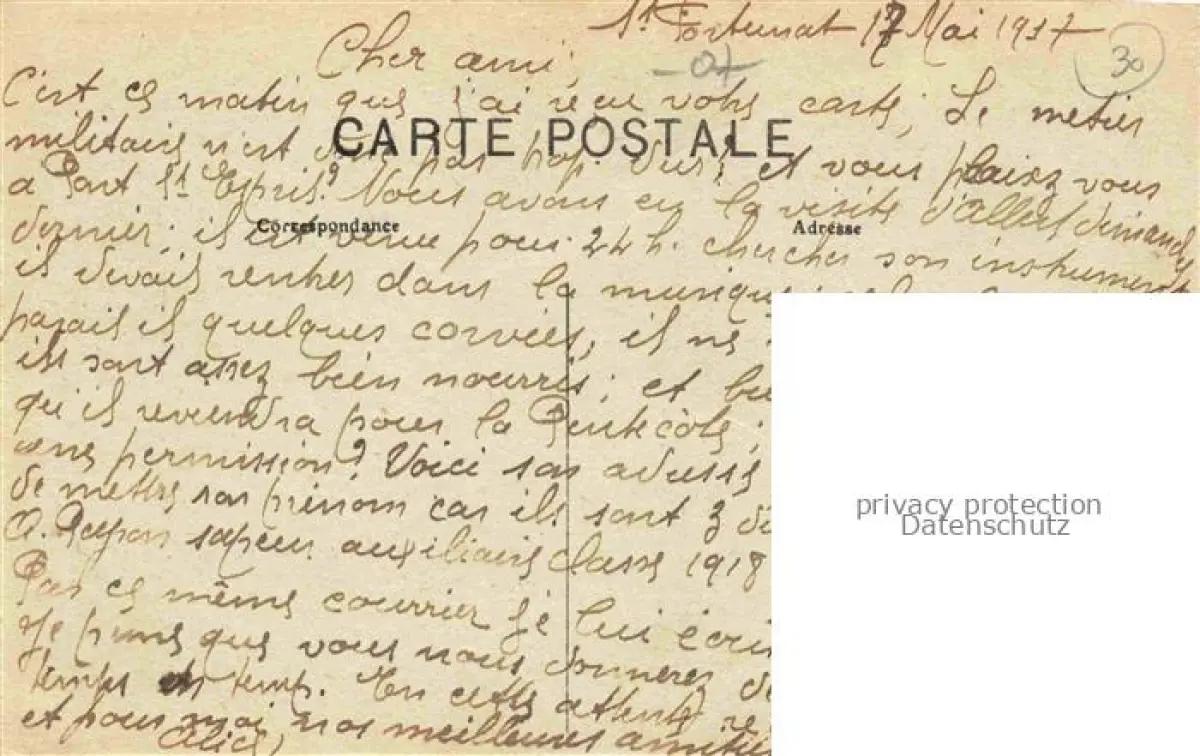 St Fortunat 17 Mai 1917
30
Cher ami,
C'est ce matin que j'ai reçu votre carte; Le metier
CARTE POSTALE
militaire n'est pas trop dur? et vous plaisez vous
a Pont St Esprit? Nous avons eu la visite d'Albert dimanche
Correspondance
Adresse
dernier; il est venu pour 24 h. chercher son instrument
il devait rentrer dans la musique
parait il quelques corvées, il ne
ils sont assez bien nourris; et
qu'il reviendra pour la Pentecôte;
permission? Voici son adresse
de mettre son prénom car ils sont 3
A. sapeur auxiliaire classe 1918
Par ce même courrier je lui écris
Je pense que vous nous donnerez de
temps en temps. En cette attente
et pour moi, nos meilleures amitiés
Alice,
privacy protection
Datenschutz